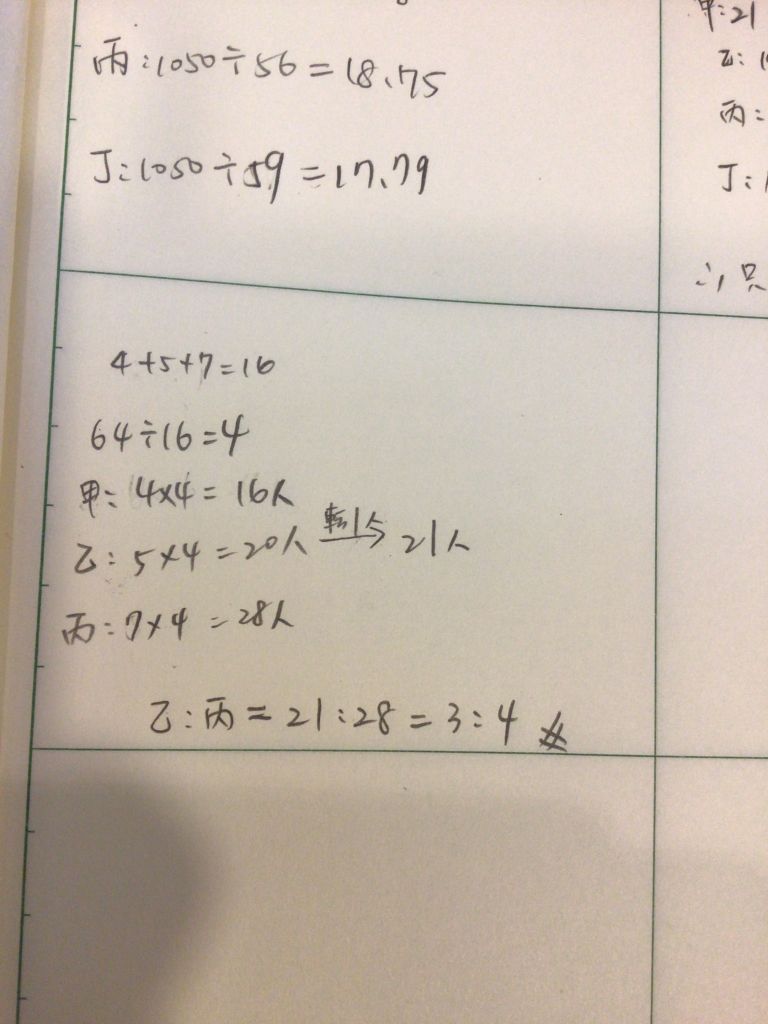 丙:1050÷56=18.75
丁:1050÷59=17.79
4+5+7=16
64÷16=4
甲:4×4=16人
乙:5×4=20人 轉1人→ 21人
丙:7×4=28人
乙:丙=21:28=3:4
甲:21
乙:
丙:
丁:
∴只